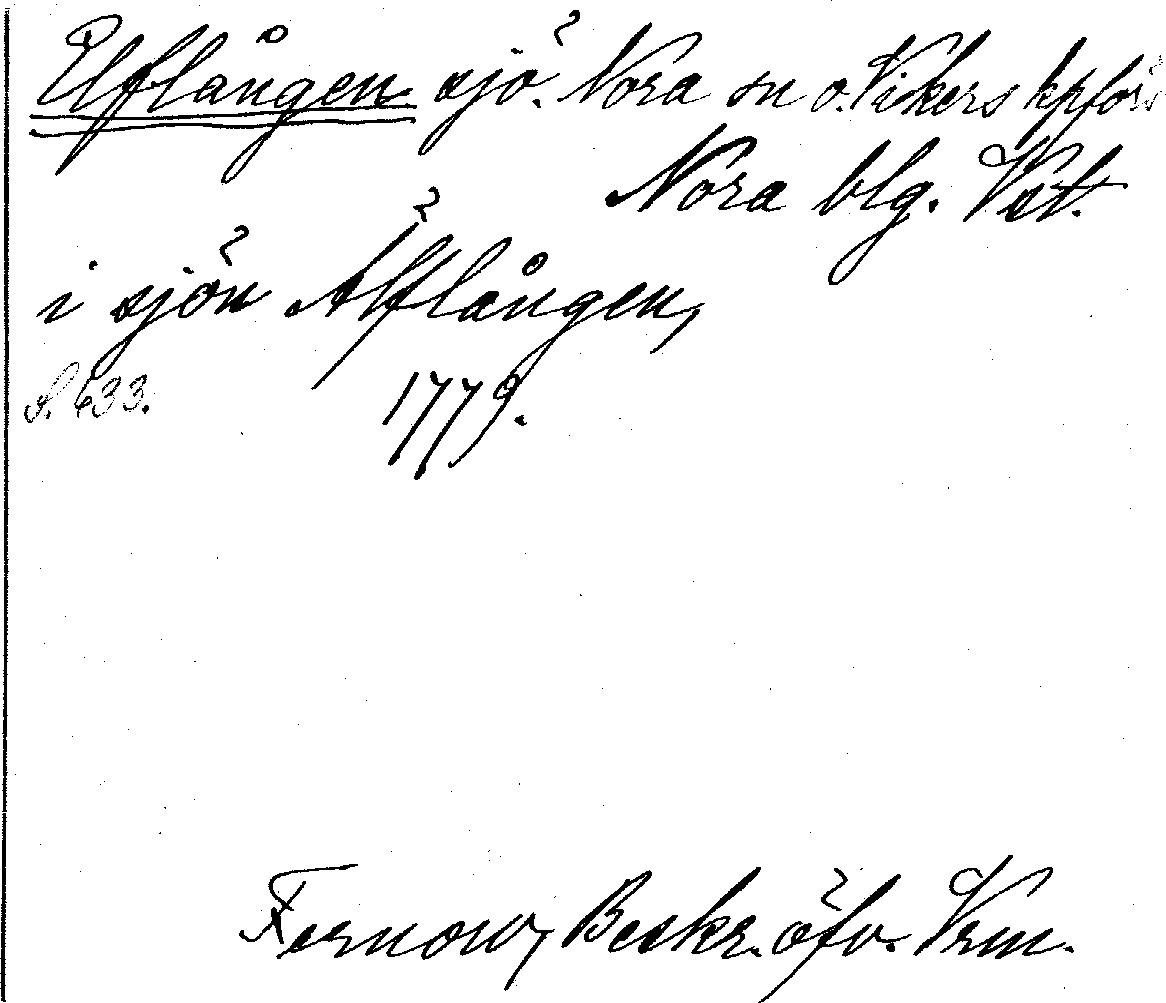 Elflången sjö. Nora sn o. Vikers kpförs
Nora blg. Vstm.
i sjön Älflången,
S. 633. 1779.
Fernow, Beskr. öfv. Vrm.